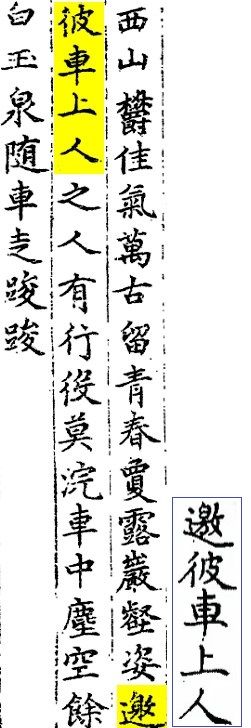 西山欝佳氣萬古留青春賈露巖壑姿邀
彼車上人之人有行役莫浣車中塵空餘
白玉泉随車走踆踆
邀彼車上人